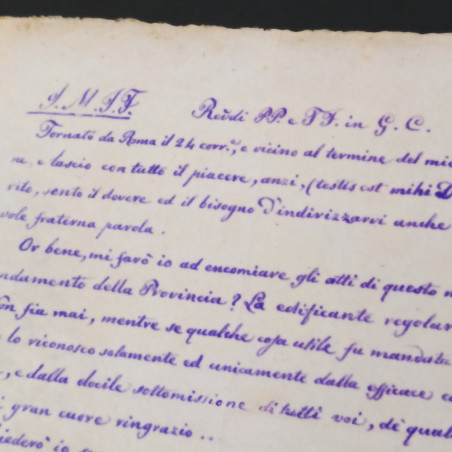 J. M. J. F. Rev̄di PP. e FF. in G. C.
Tornato da Roma il 24 corr.e, e vicino al termine del mio
e lascio con tutto il piacere, anzi, (testis est mihi D
rito, sento il dovere ed il bisogno d'indirizzarvi anche
vole fraterna parola.
Or bene, mi farò io ad encomiare gli atti di questo
ndamento della Provincia? La edificante regolar
on sia mai, mentre se qualche cosa utile fu mandata
lo riconosco solamente ed unicamente dalla efficace
, e dalla docile sottomissione di tutti voi, de' quali
gran cuore ringrazio..
iederò io